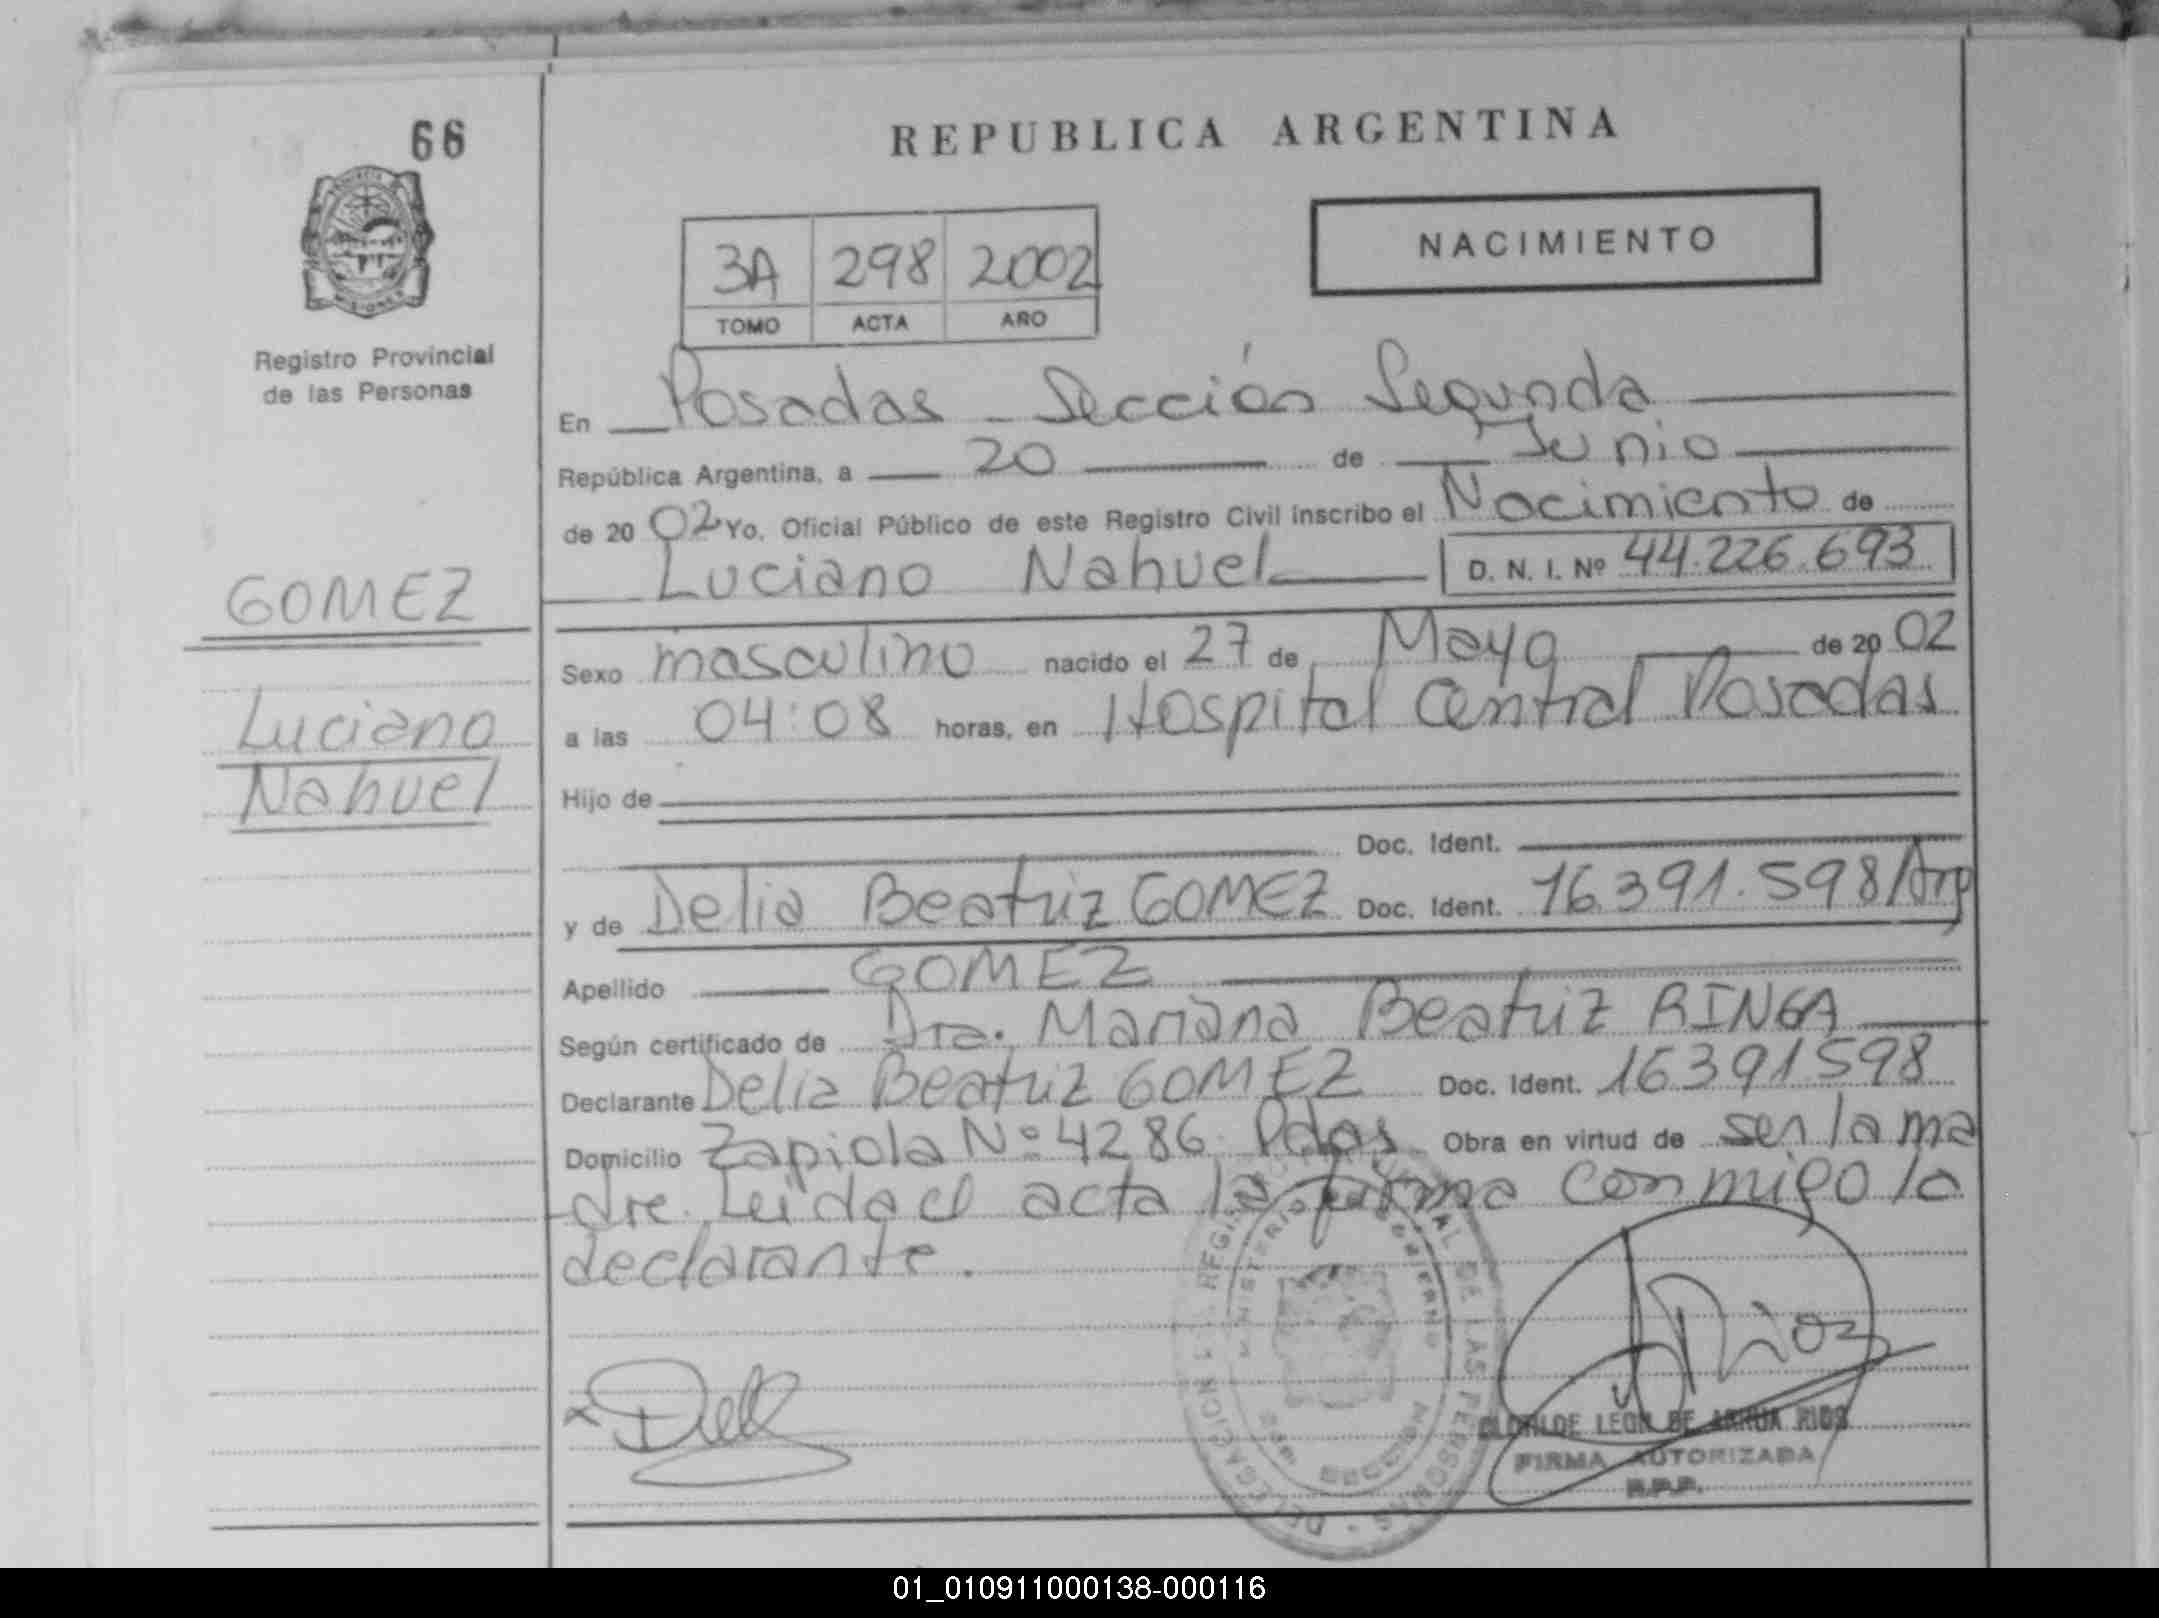 66
REPUBLICA ARGENTINA
NACIMIENTO
3A 298 2002
TOMO ACTA AÑO
Registro Provincial
de las Personas
En Posadas - Sección Segunda
República Argentina, a 20 de Junio
de 2002 Yo, Oficial Público de este Registro Civil inscribo el Nacimiento de
Luciano Nahuel D. N. I. Nº 44.226.693
GOMEZ
Luciano
Nahuel
Sexo masculino nacido el 27 de Mayo de 2002
a las 04:08 horas, en Hospital Central Posadas
Hijo de
Doc. Ident.
y de Delia Beatriz GOMEZ Doc. Ident. 16.391.598/Arg
Apellido GOMEZ
Según certificado de Dra. Mariana Beatriz RINGA
Declarante Delia Beatriz GOMEZ Doc. Ident. 16391598
Domicilio Zapiola Nº 4286 Pdas Obra en virtud de ser la ma
dre. Leida el acta la firma conmigo la
declarante.
DELEGACION 1 REGISTRO DE LAS PERSONAS
MINISTERIO DE GOBIERNO
MISIONES
LEON DE RIOS
FIRMA AUTORIZADA
R.P.P.
01_010911000138-000116